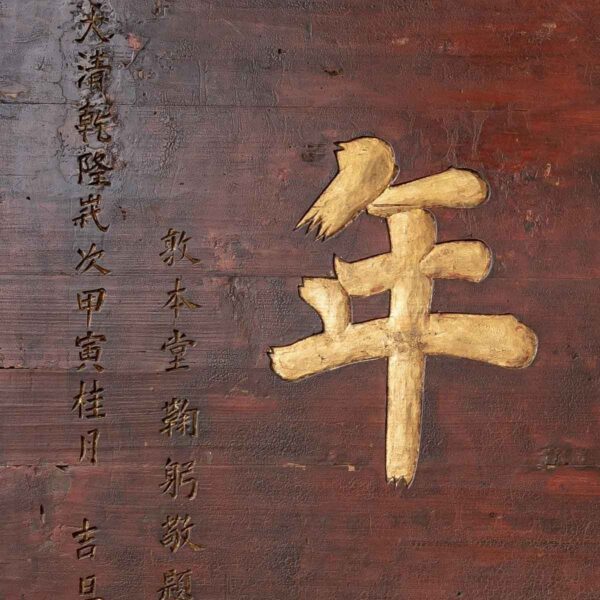 年
敦本堂 鞠躬敬題
清乾隆歲次甲寅桂月 吉旦